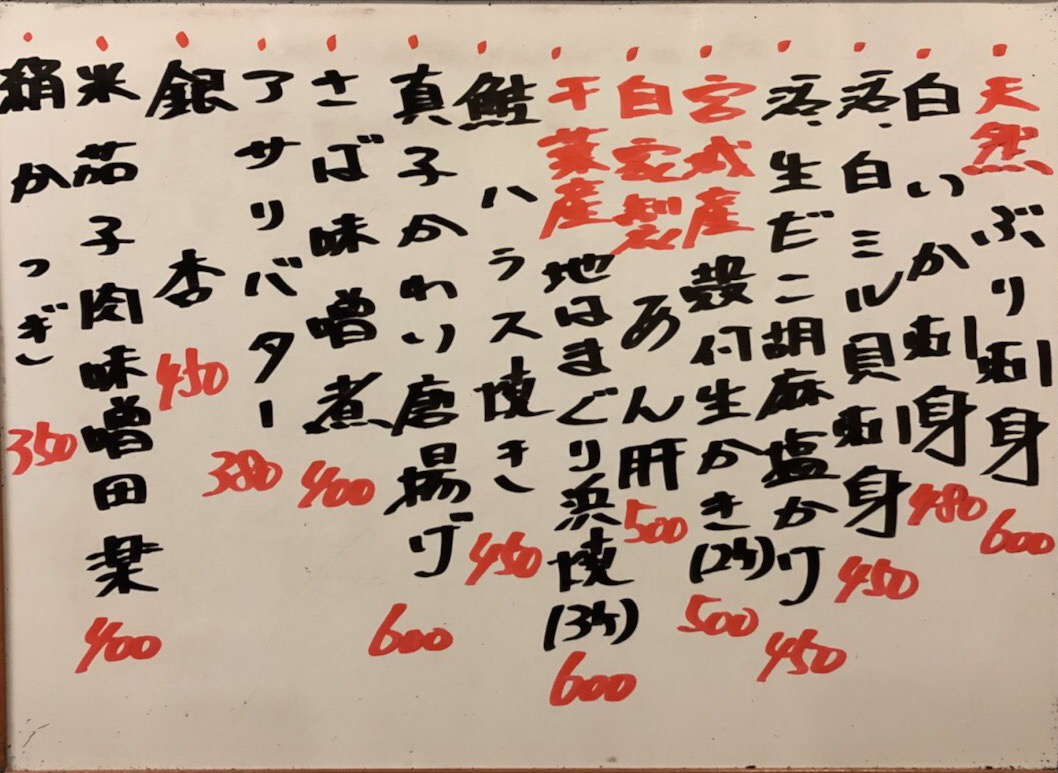 天然ぶり刺身 600
白いか刺身 480
活白ミル貝刺身 450
活生だこ胡麻塩かけ 450
宮城産殻付生かき(2ケ) 500
自家製あん肝 500
千葉産地はまぐり浜焼(3ケ) 600
鮭ハラス焼き 450
真子かれい唐揚げ 600
さば味噌煮 400
アサリバター 380
銀杏 450
米茄子肉味噌田楽 400
絹かつぎ 350